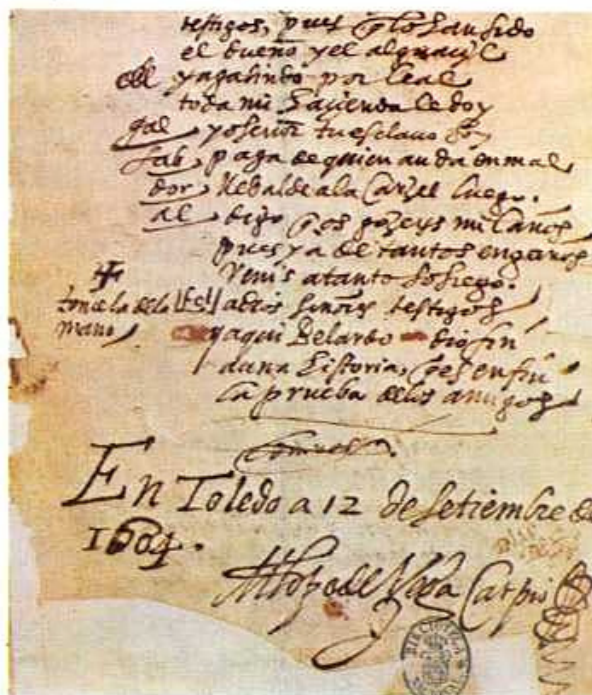 testigos, pues q̃ lo han sido
el dueño y el alguaçil
del y a galindo por leal
toda mi hazienda le doy
gal yo señor tu esclavo soy
fab paga de quien anda en mal
dor llebalde a la carzel luego.
al digo q̃ os gozeys mil años
pues ya de tantos engaños
venis a tanto sosiego.
tomela de la fel adios señores testigos
mano y aqui Belardo dio fin
a una historia, q̃ es en fin
la prueba de los amigos
En Toledo a 12 de setiembre de
1604.
Lope de Vega Carpio
BIBLIOTECA